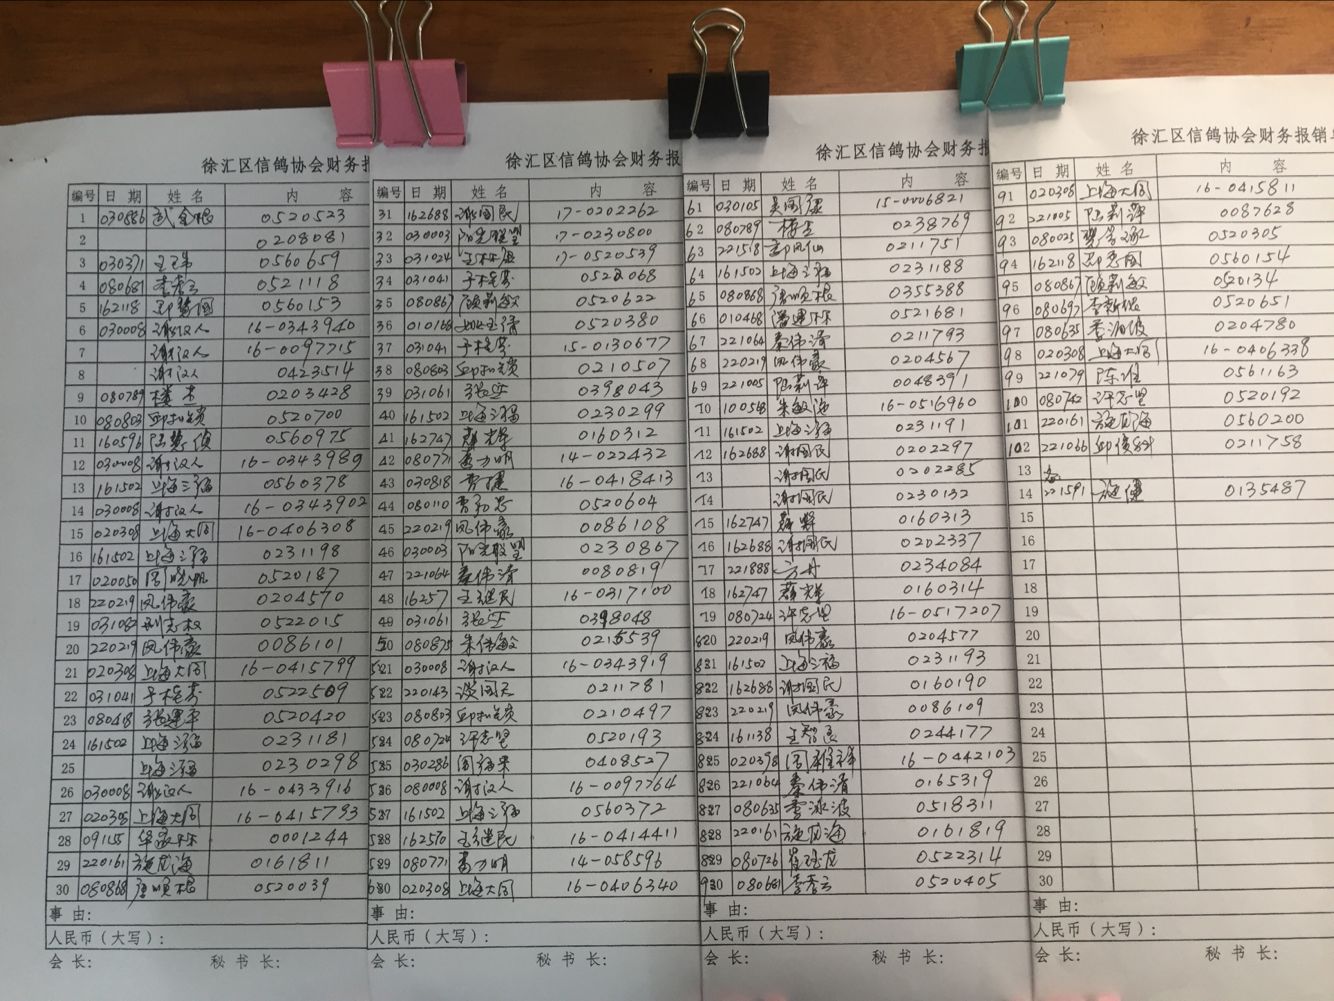 徐汇区信鸽协会财务报
编号 日 期 姓 名 内 容
1 030886 武金根 0520523
2 0208081
3 030371 王玮 0560659
4 080681 李秀云 0521118
5 162118 0560153
6 030008 谢汉人 16-0343940
7 谢汉人 16-0097715
8 谢汉人 0423514
9 080789 0203428
10 080803 0520700
11 160596 0560975
12 030008 谢汉人 16-0343989
13 161502 上海三福 0560378
14 030008 谢汉人 16-0343902
15 020308 上海大同 16-0406308
16 161502 上海三福 0231198
17 020050 0520187
18 220219 凤伟豪 0204570
19 031082 刘志权 0522015
20 220219 凤伟豪 0086101
21 020308 上海大同 16-0415799
22 031041 0522509
23 080418 张建平 0520420
24 161502 上海三福 0231181
25 上海三福 0230298
26 030008 谢汉人 16-0433916
27 020308 上海大同 16-0415793
28 091155 0001244
29 220161 施龙海 0161811
30 080868 唐顺根 0520039
事 由:
人民币(大写):
会 长: 秘 书 长:
徐汇区信鸽协会财务报
编号 日 期 姓 名 内 容
31 162688 谢国民 17-0202262
32 030003 阳光联盟 17-0230800
33 031024 17-0520539
34 031041 0522068
35 080867 顾莉敏 0520622
36 010168 0520380
37 031041 15-0130677
38 080803 0210507
39 031061 0398043
40 161502 上海三福 0230299
41 162747 蔡辉 0160312
42 080771 14-022432
43 030818 16-0418413
44 080110 0520604
45 220219 凤伟豪 0086108
46 030003 阳光联盟 0230867
47 221064 秦伟清 0080819
48 16257 王继民 16-0317100
49 031061 0398048
50 080875 朱伟敏 0215539
51 030008 谢汉人 16-0343919
52 220143 0211781
53 080803 0210497
54 080724 许志坚 0520193
55 030286 0408527
56 080008 谢汉人 16-0097764
57 161502 上海三福 0560372
58 162570 王继民 16-0414411
59 080771 14-058596
60 020308 上海大同 16-0406340
事 由:
人民币(大写):
会 长: 秘 书 长:
徐汇区信鸽协会财务报
编号 日 期 姓 名 内 容
61 030105 吴国康 15-0006821
62 080789 0238769
63 221518 0211751
64 161502 上海三福 0231188
65 080868 唐顺根 0355388
66 010468 0521681
67 221064 秦伟清 0211793
68 220219 凤伟豪 0204567
69 221005 陆莉萍 0048391
70 100548 朱敏海 16-0516960
71 161502 上海三福 0231191
72 162688 谢国民 0202297
73 谢国民 0202285
74 谢国民 0230132
75 162747 蔡辉 0160313
76 162688 谢国民 0202337
77 221888 方舟 0234084
78 162747 蔡辉 0160314
79 080724 许志坚 16-0517207
80 220219 凤伟豪 0204577
81 161502 上海三福 0231193
82 162688 谢国民 0160190
83 220219 凤伟豪 0086109
84 161138 王智良 0244177
85 020398 16-0442103
86 221064 秦伟清 0165319
87 080635 0518311
88 220161 施龙海 0161819
89 080726 0522314
90 080681 李秀云 0520405
事 由:
人民币(大写):
会 长: 秘 书 长:
徐汇区信鸽协会财务报销单
编号 日 期 姓 名 内 容
91 020308 上海大同 16-0415811
92 221005 陆莉萍 0087628
93 080025 0520305
94 162118 0560154
95 080867 顾莉敏 0520134
96 080697 0520651
97 080635 0204780
98 020308 上海大同 16-0406338
99 221079 陈淮 0561163
100 080742 许志坚 0520192
101 220161 施龙海 0560200
102 221066 0211758
13
14 221591 施健 0135487
15
16
17
18
19
20
21
22
23
24
25
26
27
28
29
30
事 由:
人民币(大写):
会 长: 秘 书 长: